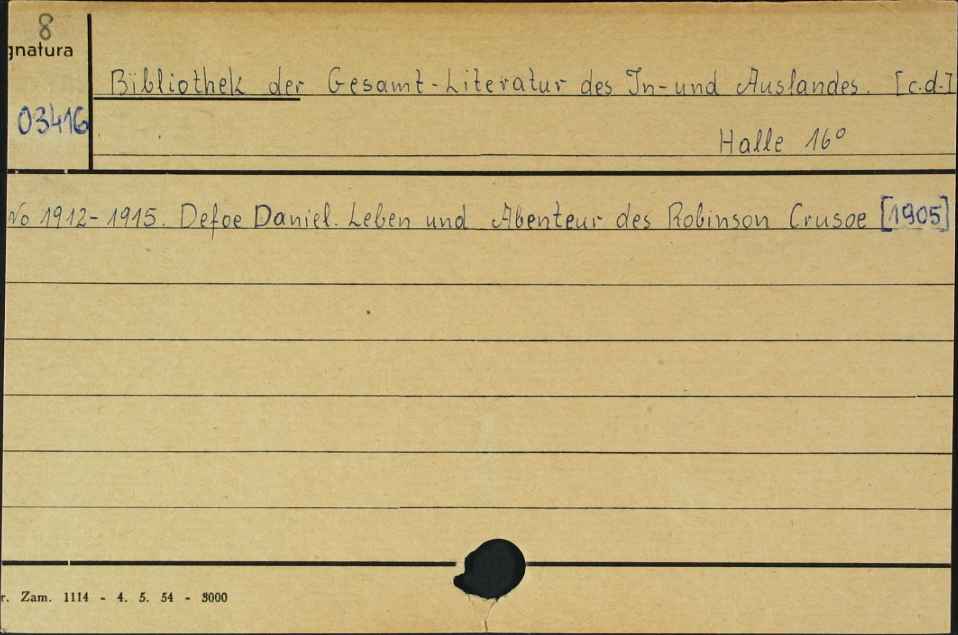 8
gnatura
Bibliothek der Gesamt-Literatur des In- und Auslandes. [c.d.]
03416
Halle 16°
No 1912-1915. Defoe Daniel. Leben und Abenteur des Robinson Crusoe [1905]
r. Zam. 1114 - 4. 5. 54 - 3000